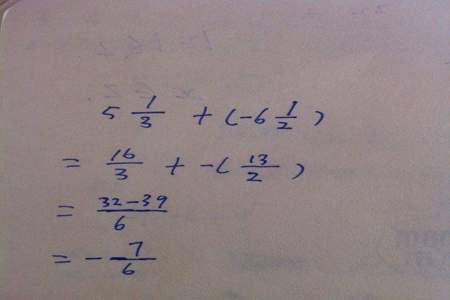 5 1/3 + (-6 1/2)
= 16/3 + -( 13/2 )
= 32-39/6
= - 7/6